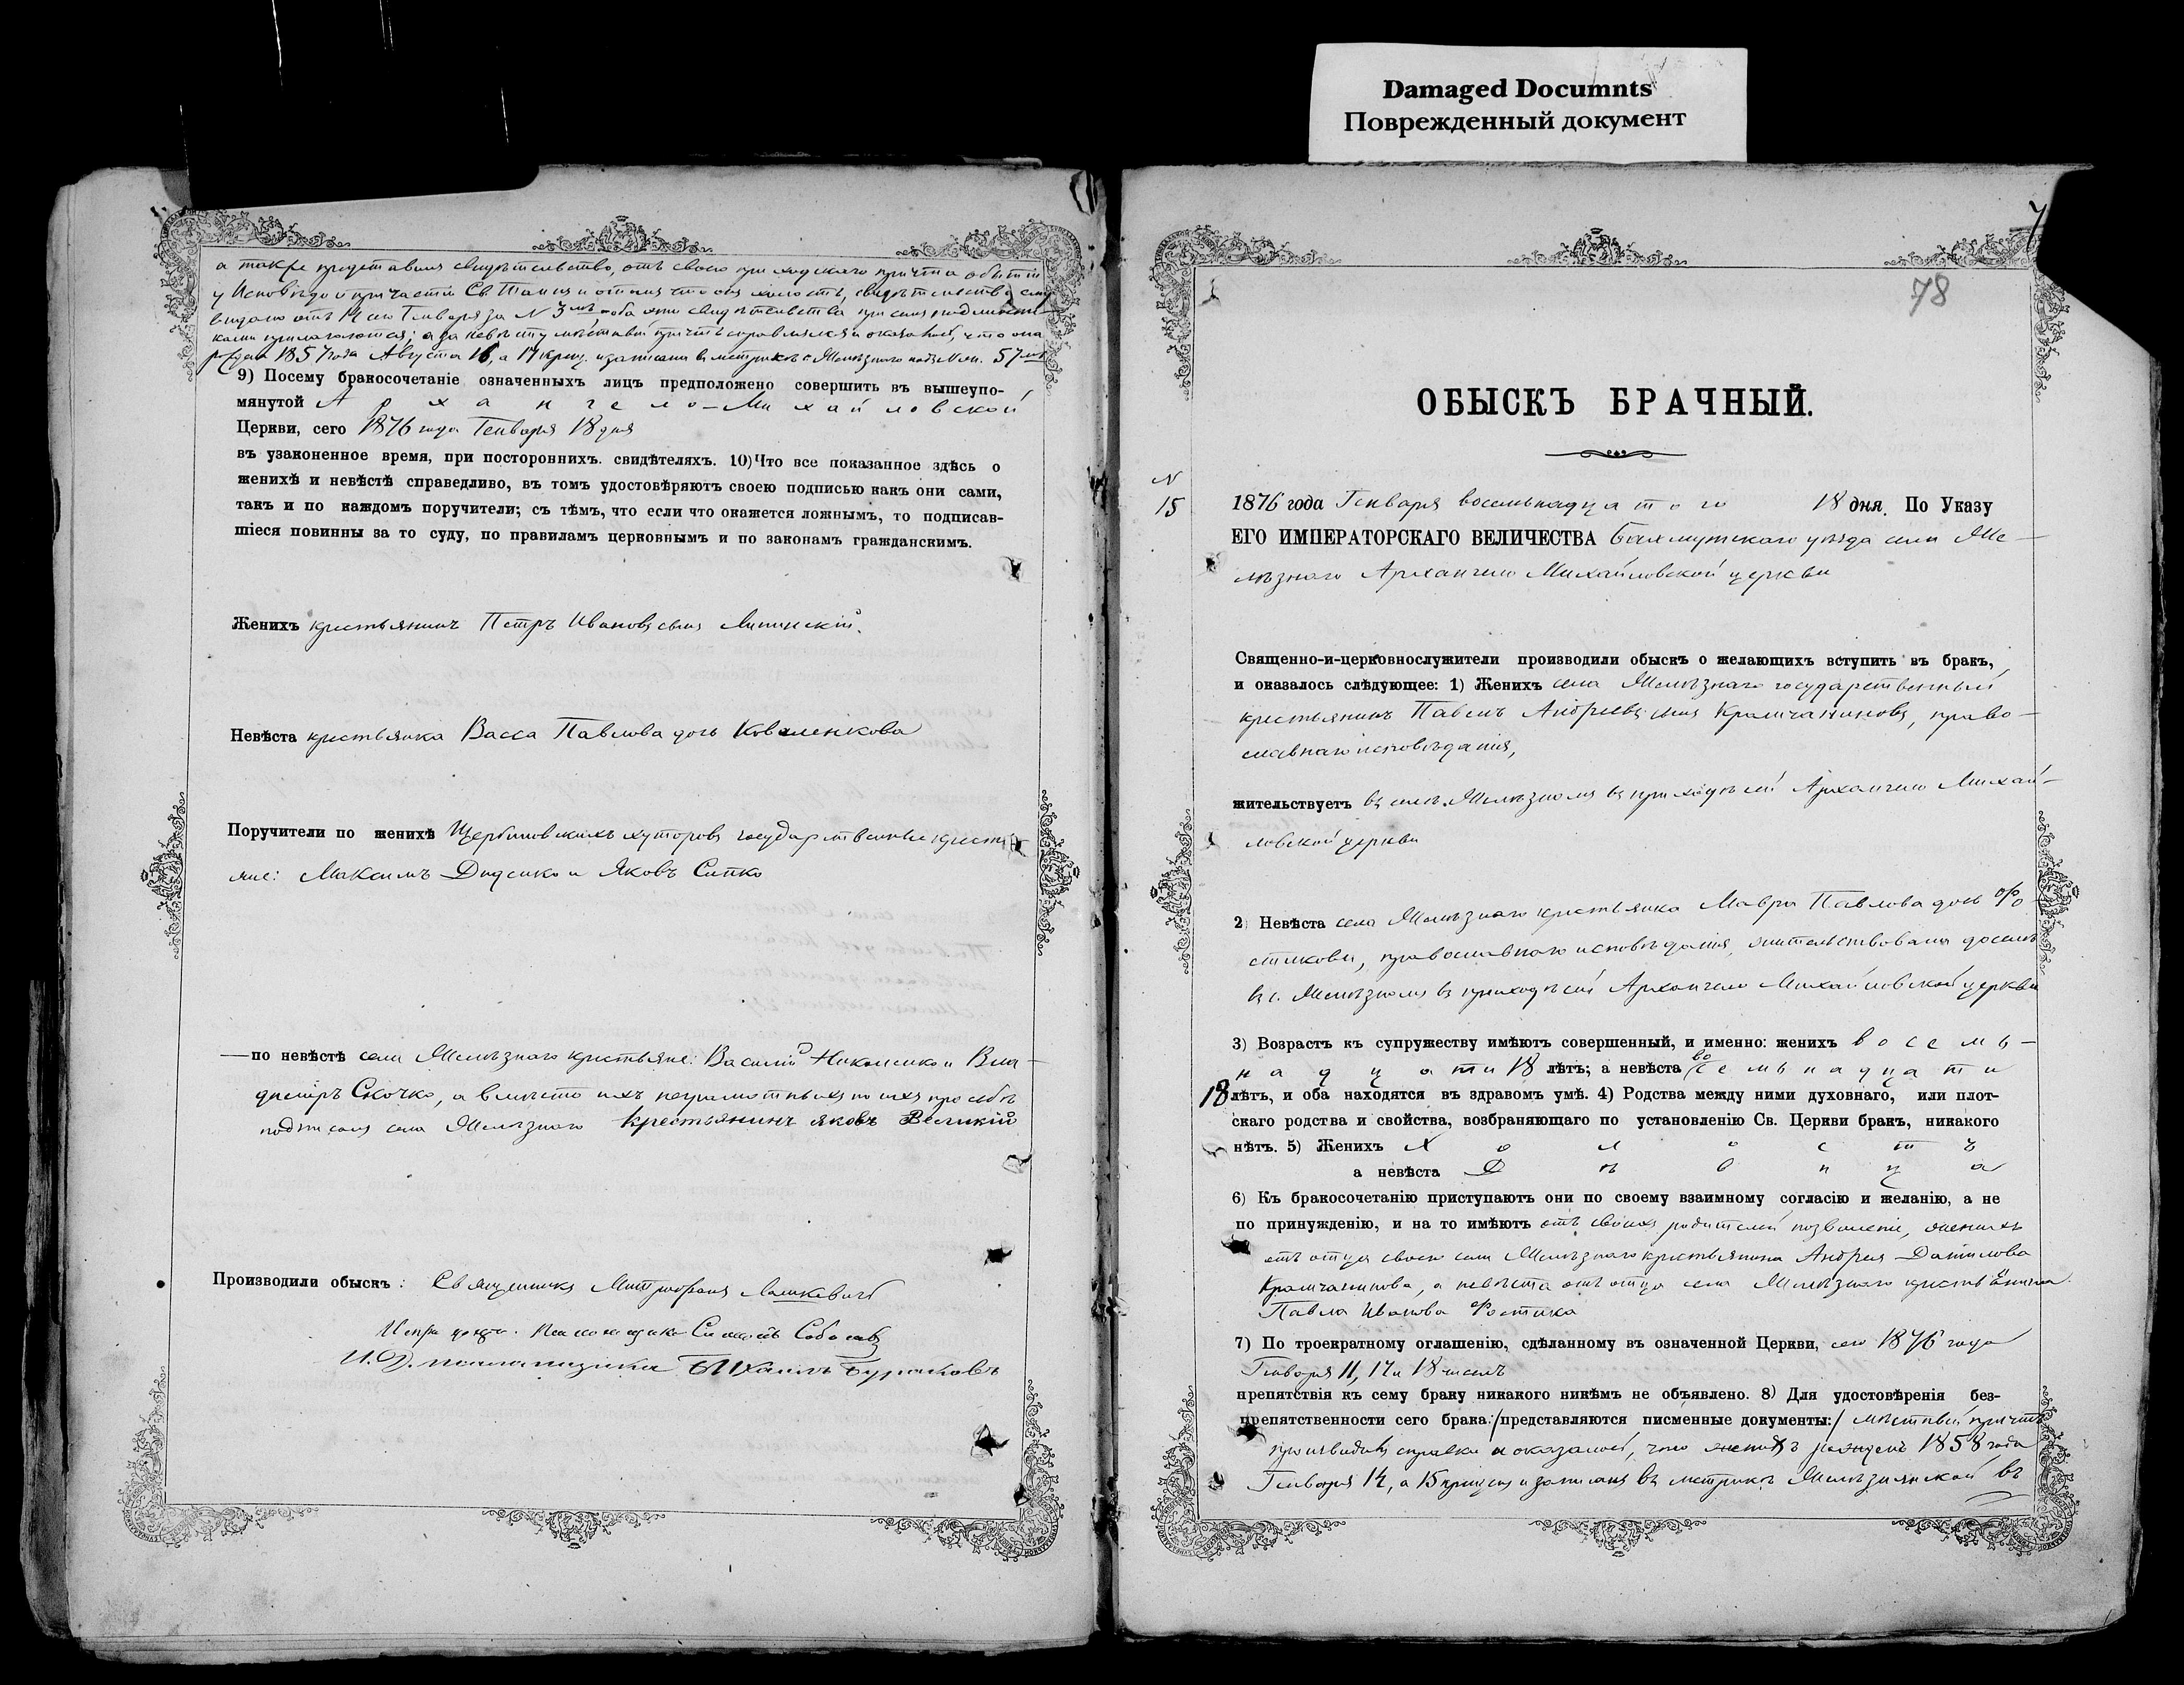 Damaged Documnts
Поврежденный документ
а также представилъ свидѣтельство, отъ своего приходскаго причта о бытіи
у Исповѣди и причастія Св. Таинъ и отомъ что онъ холостъ, свидѣтельство сему
выдано отъ 14 сего Генваря за N 3мъ оба эти свидѣтельства при семъ подлинни-
ками прилагаются; а за невѣсту мѣстный причтъ справлялся и оказалось, что она
рождена 1857 года Августа 16, а 17 крещ. и записана въ метрикѣ с. Желѣзнаго подъ № 57мъ
9) Посему бракосочетаніе означенныхъ лицъ предположено совершить въ вышеупо-
мянутой Архангело-Михайловской
Церкви, сего 1876 года Генваря 18 дня
въ узаконенное время, при постороннихъ. свидѣтеляхъ. 10) Что все показанное здѣсь о
женихѣ и невѣстѣ справедливо, въ томъ удостовѣряютъ своею подписью какъ они сами,
такъ и по каждомъ поручители; съ тѣмъ, что если что окажется ложнымъ, то подписав-
шіеся повинны за то суду, по правиламъ церковнымъ и по законамъ гражданскимъ.
Женихъ крестьянинъ Петръ Ивановъ сынъ Липинскій.
Невѣста крестьянка Васса Павлова дочь Коваленкова
Поручители по женихѣ Щербиновскихъ хуторовъ государственные крестья
яне: Максимъ Диденко и Яковъ Сипко
— по невѣстѣ села Желѣзнаго крестьяне: Василій Николенко и Вла-
диміръ Скочко, а вмѣсто ихъ неграмотныхъ по ихъ просьбѣ
подписался села Желѣзнаго крестьянинъ Яковъ Великій
Производили обыскъ: Священникъ Митрофанъ Лашкевичъ
Псаломщикъ Симеонъ
И. Д. псаломщика Михаилъ Бураковъ
78
ОБЫСКЪ БРАЧНЫЙ.
N
15
1876 года Генваря восемьнадцатого 18 дня. По Указу
ЕГО ИМПЕРАТОРСКАГО ВЕЛИЧЕСТВА Бахмутскаго уѣзда села Же-
лѣзнаго Архангело Михайловской церкви
Священно-и-церковнослужители производили обыскъ о желающихъ вступить въ бракъ,
и оказалось слѣдующее: 1) Женихъ села Желѣзнаго государственный
крестьянинъ Павелъ Андреевъ сынъ Крамчаниновъ, право-
славнаго исповѣданія,
жительствуетъ въ селѣ Желѣзномъ въ приходѣ сей Архангело Михай-
ловской церкви
2) Невѣста села Желѣзнаго крестьянка Мавра Павлова дочь Фо-
стикова, православнаго исповѣданія, жительствовала доселѣ
въ с. Желѣзномъ въ приходѣ сей Архангело Михайловской церкви
3) Возрастъ къ супружеству имѣютъ совершенный, и именно: женихъ восемь-
надцати 18 лѣтъ; а невѣста восемьнадцати
18 лѣтъ, и оба находятся въ здравомъ умѣ. 4) Родства между ними духовнаго, или плот-
скаго родства и свойства, возбраняющаго по установленію Св. Церкви бракъ, никакого
нѣтъ. 5) Женихъ Холостъ
а невѣста Дѣвица
6) Къ бракосочетанію приступаютъ они по своему взаимному согласію и желанію, а не
по принужденію, и на то имѣютъ отъ своихъ родителей позволеніе, женихъ
отъ отца своего села Желѣзнаго крестьянина Андрея Данилова
Крамчанинова, а невѣста отъ отца села Желѣзнаго крестьянина
Павла Иванова Фостика
7) По троекратному оглашенію, сдѣланному въ означенной Церкви, сего 1876 года
Генваря 11, 17 и 18 числъ
препятствія къ сему браку никакого никѣмъ не объявлено. 8) Для удостовѣренія без-
препятственности сего брака:/представляются писменные документы:/ мѣстный причтъ
производилъ справки и оказалось, что женихъ рожденъ 1858 года
Генваря 14, а 15 крещенъ и записанъ въ метрикѣ Желѣзнянской въ